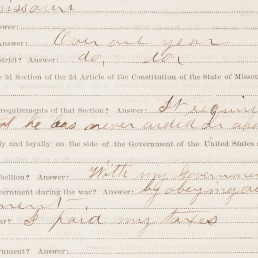 Missouri
nswer:
Answer: Over one year
strict? Answer: do, do,
e 3d Section of the 2d Article of the Constitution of the State of Missou
requirements of that Section? Answer: It requir
at he has never aided or abe
ly and loyally on the side of the Government of the United States
bellion? Answer: With my Governmen
vernment during the war? Answer: by obeying
ment
ar? I paid my taxes
vernment? Answer: